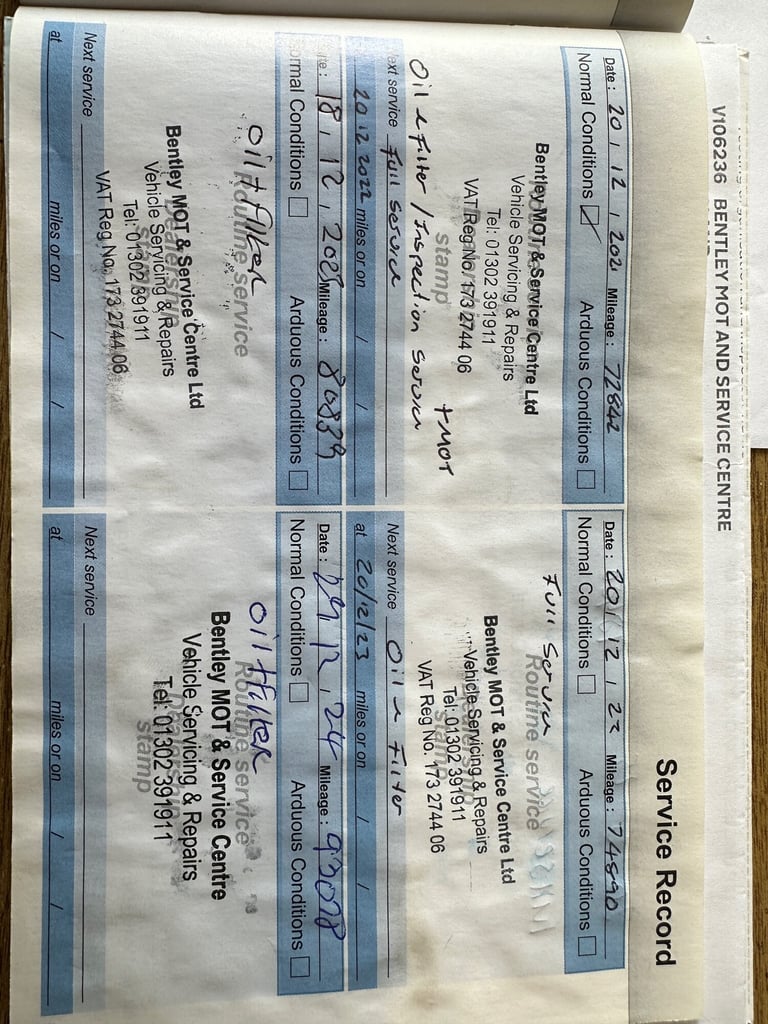 V106236 BENTLEY MOT AND SERVICE CENTRE
Service Record
Date : 20 / 12 / 2021 Mileage : 72842
Normal Conditions Arduous Conditions
Bentley MOT & Service Centre Ltd
Vehicle Servicing & Repairs
Tel: 01302 391911
VAT Reg No. 173 2744 06
stamp
+ MOT
Oil & Filter / Inspection Service
Next service Full Service
20 12 2022 miles or on / /
Date : 20 / 12 / 22 Mileage : 74590
Normal Conditions Arduous Conditions
Full Service
Routine service
Bentley MOT & Service Centre Ltd
Vehicle Servicing & Repairs
Tel: 01302 391911
VAT Reg No. 173 2744 06
Next service Oil & Filter
at 20/12/23 miles or on / /
18 , 12 , 2023 Mileage : 80839
Normal Conditions Arduous Conditions
oil + filter
Routine service
Bentley MOT & Service Centre Ltd
Dealership
Vehicle Servicing & Repairs
stamp
Tel: 01302 391911
VAT Reg No. 173 2744 06
Next service
at miles or on / /
Date : 12 , 24 Mileage : 93078
Normal Conditions Arduous Conditions
oil + filter
Routine service
Bentley MOT & Service Centre
Vehicle Servicing & Repairs
Dealership
Tel: 01302 391911
stamp
Next service
at miles or on / /